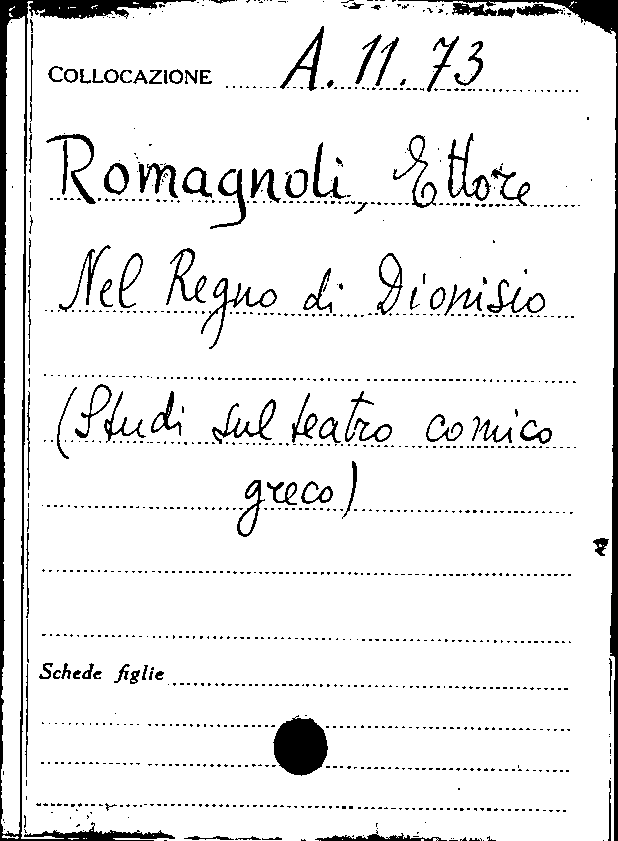 COLLOCAZIONE A. 11. 73
Romagnoli, Ettore
Nel Regno di Dionisio
(Studi sul teatro comico
greco)
Schede figlie